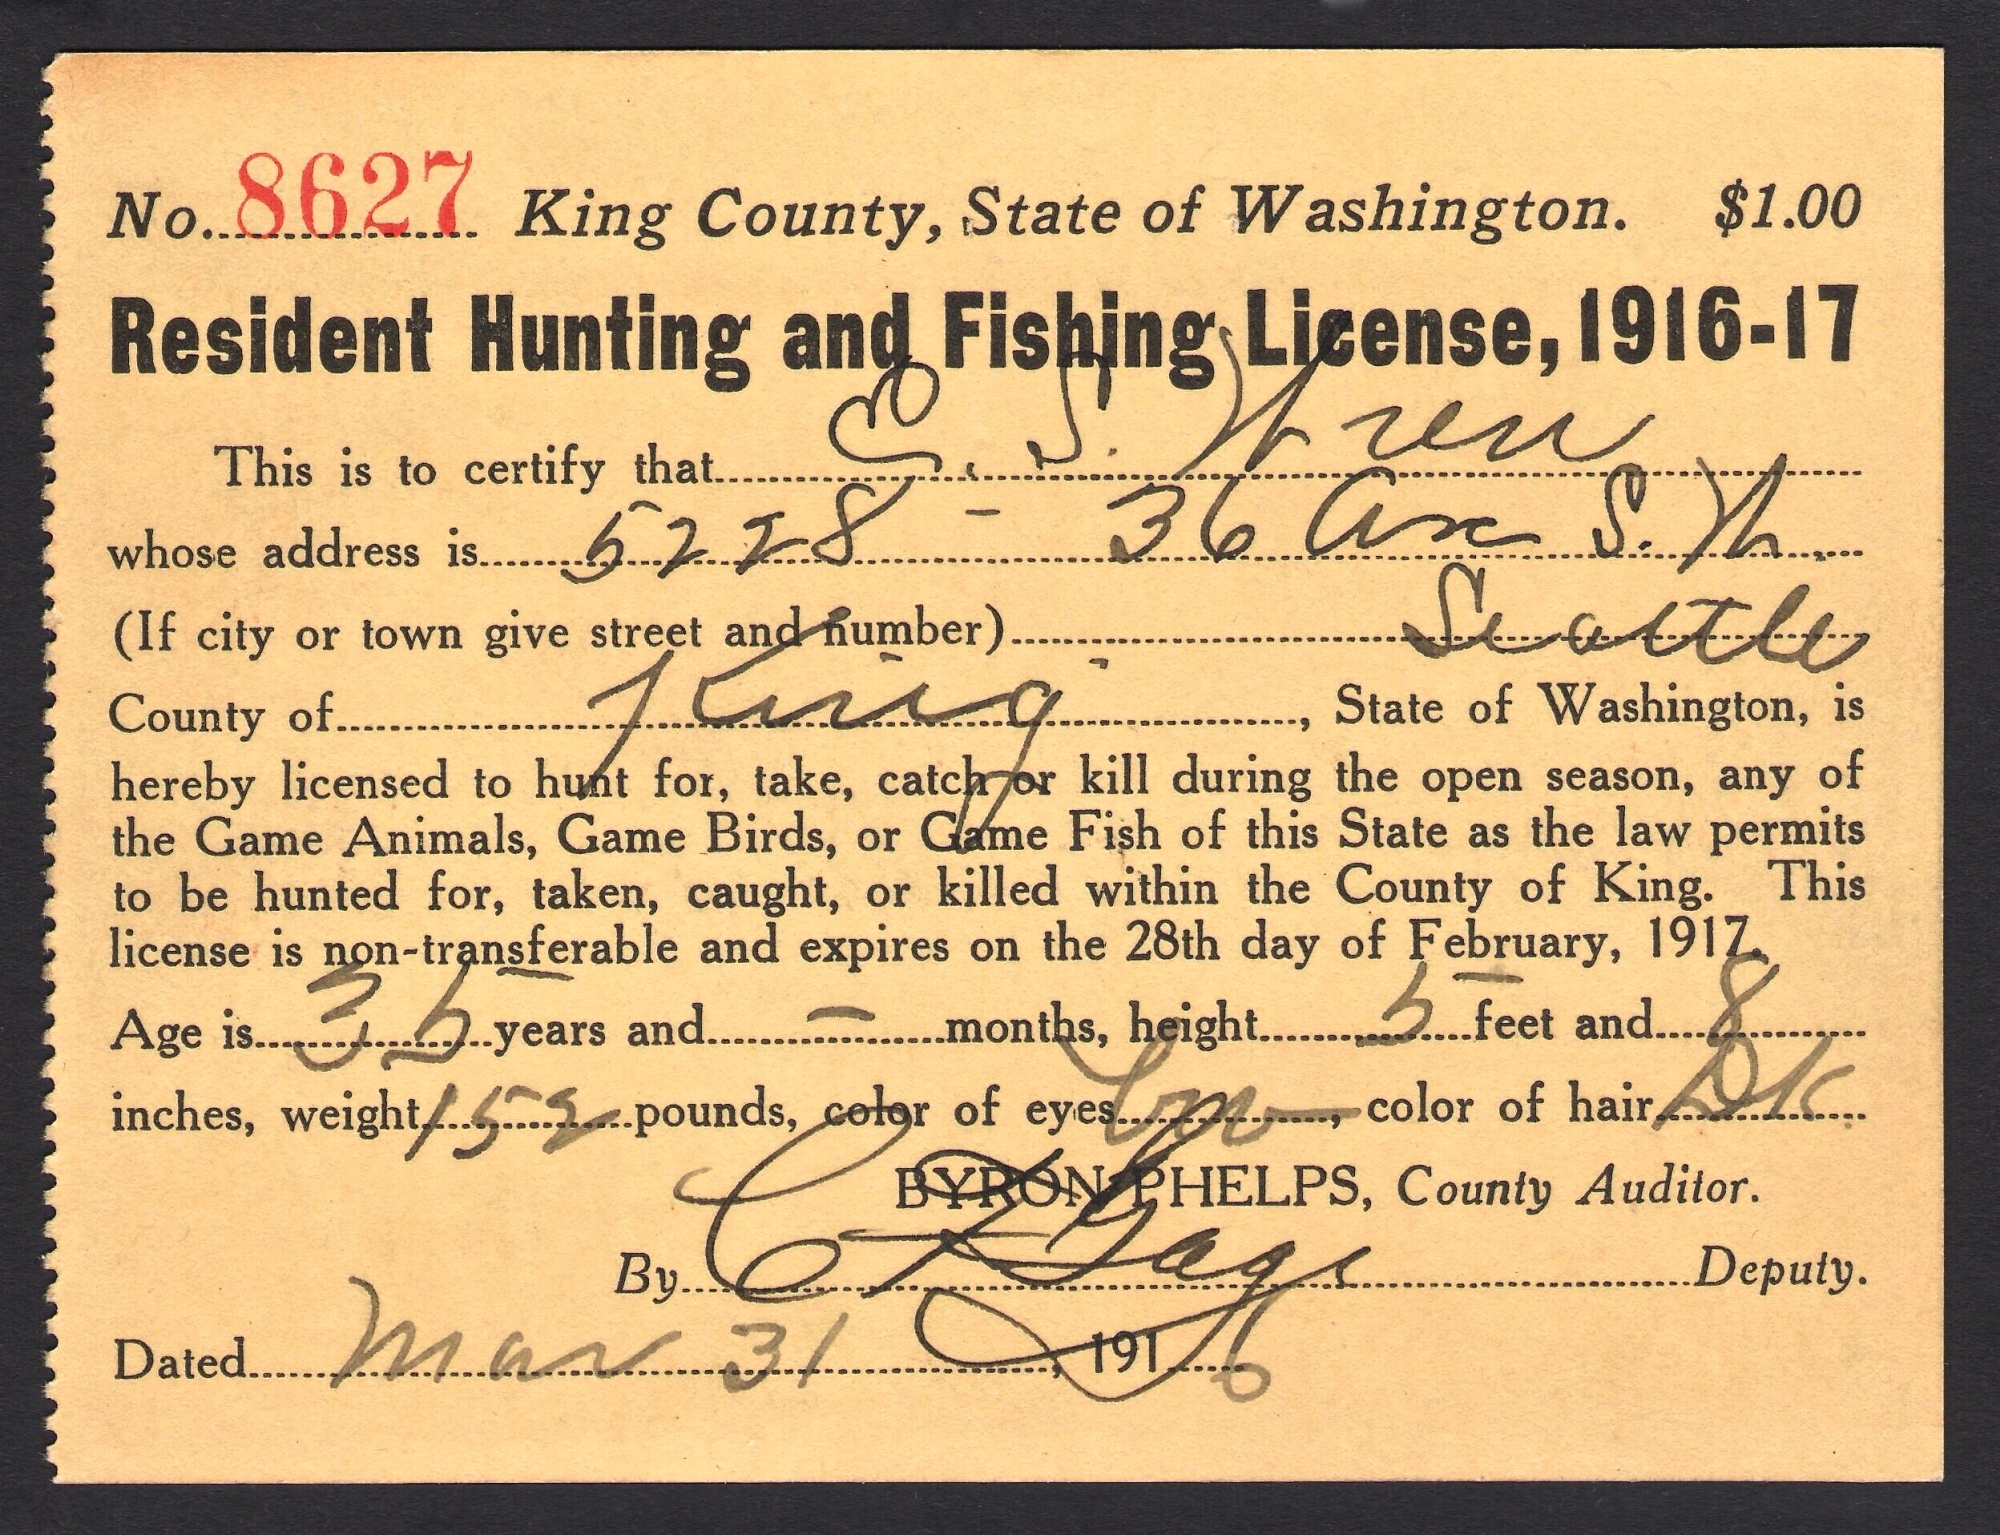 No. 8627 King County, State of Washington. $1.00
Resident Hunting and Fishing License, 1916-17
This is to certify that C. S. Wren
whose address is 5228 - 36 Ave S. W.
(If city or town give street and number) Seattle
County of King, State of Washington, is
hereby licensed to hunt for, take, catch or kill during the open season, any of
the Game Animals, Game Birds, or Game Fish of this State as the law permits
to be hunted for, taken, caught, or killed within the County of King. This
license is non-transferable and expires on the 28th day of February, 1917.
Age is 35 years and - months, height 5 feet and 8
inches, weight 152 pounds, color of eyes, color of hair DK
BYRON PHELPS, County Auditor.
By Gage Deputy.
Dated Mar 31, 1916